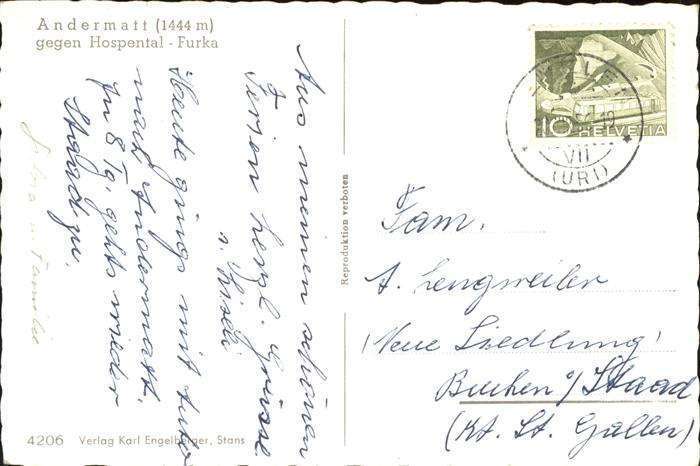 Andermatt (1444 m)
gegen Hospental - Furka
Aus meinen schönen
Ferien herzl. Grüsse
v. Thisli
Heute gings mit Auto
nach Andermatt.
In 8 Tg. gehts wieder
Staad zu.
u. Familie
Reproduktion verboten
10 HELVETIA
VII
(URI)
Fam.
A. Lengweiler
"Neue Siedlung"
Buchen b/ Staad
(Kt. St. Gallen)
4206 Verlag Karl Engelberger, Stans